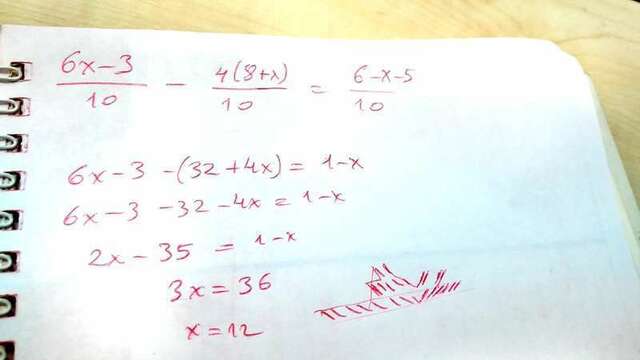 6x-3/10 - 4(8+x)/10 = 6-x-5/10
6x-3-(32+4x)=1-x
6x-3-32-4x=1-x
2x-35=1-x
3x=36
x=12